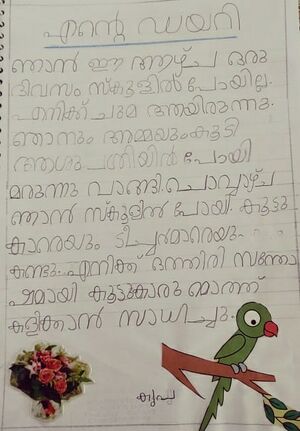 എന്റെ ഡയറി
ഞാൻ ഈ ആഴ്ച ഒരു
ദിവസം സ്കൂളിൽ പോയില്ല.
എനിക്ക് ചുമ ആയിരുന്നു.
ഞാനും അമ്മയുംകൂടി
ആശുപത്രിയിൽ പോയി
മരുന്നു വാങ്ങി.ചൊവ്വാഴ്ച
ഞാൻ സ്കൂളിൽ പോയി. കൂട്ടു
കാരെയും ടീച്ചർമാരെയും
കണ്ടു. എനിക്ക് ഒത്തിരി സന്തോ
ഷമായി കൂട്ടുകാരു മൊത്ത്
കളിക്കാൻ സാധിച്ചു.